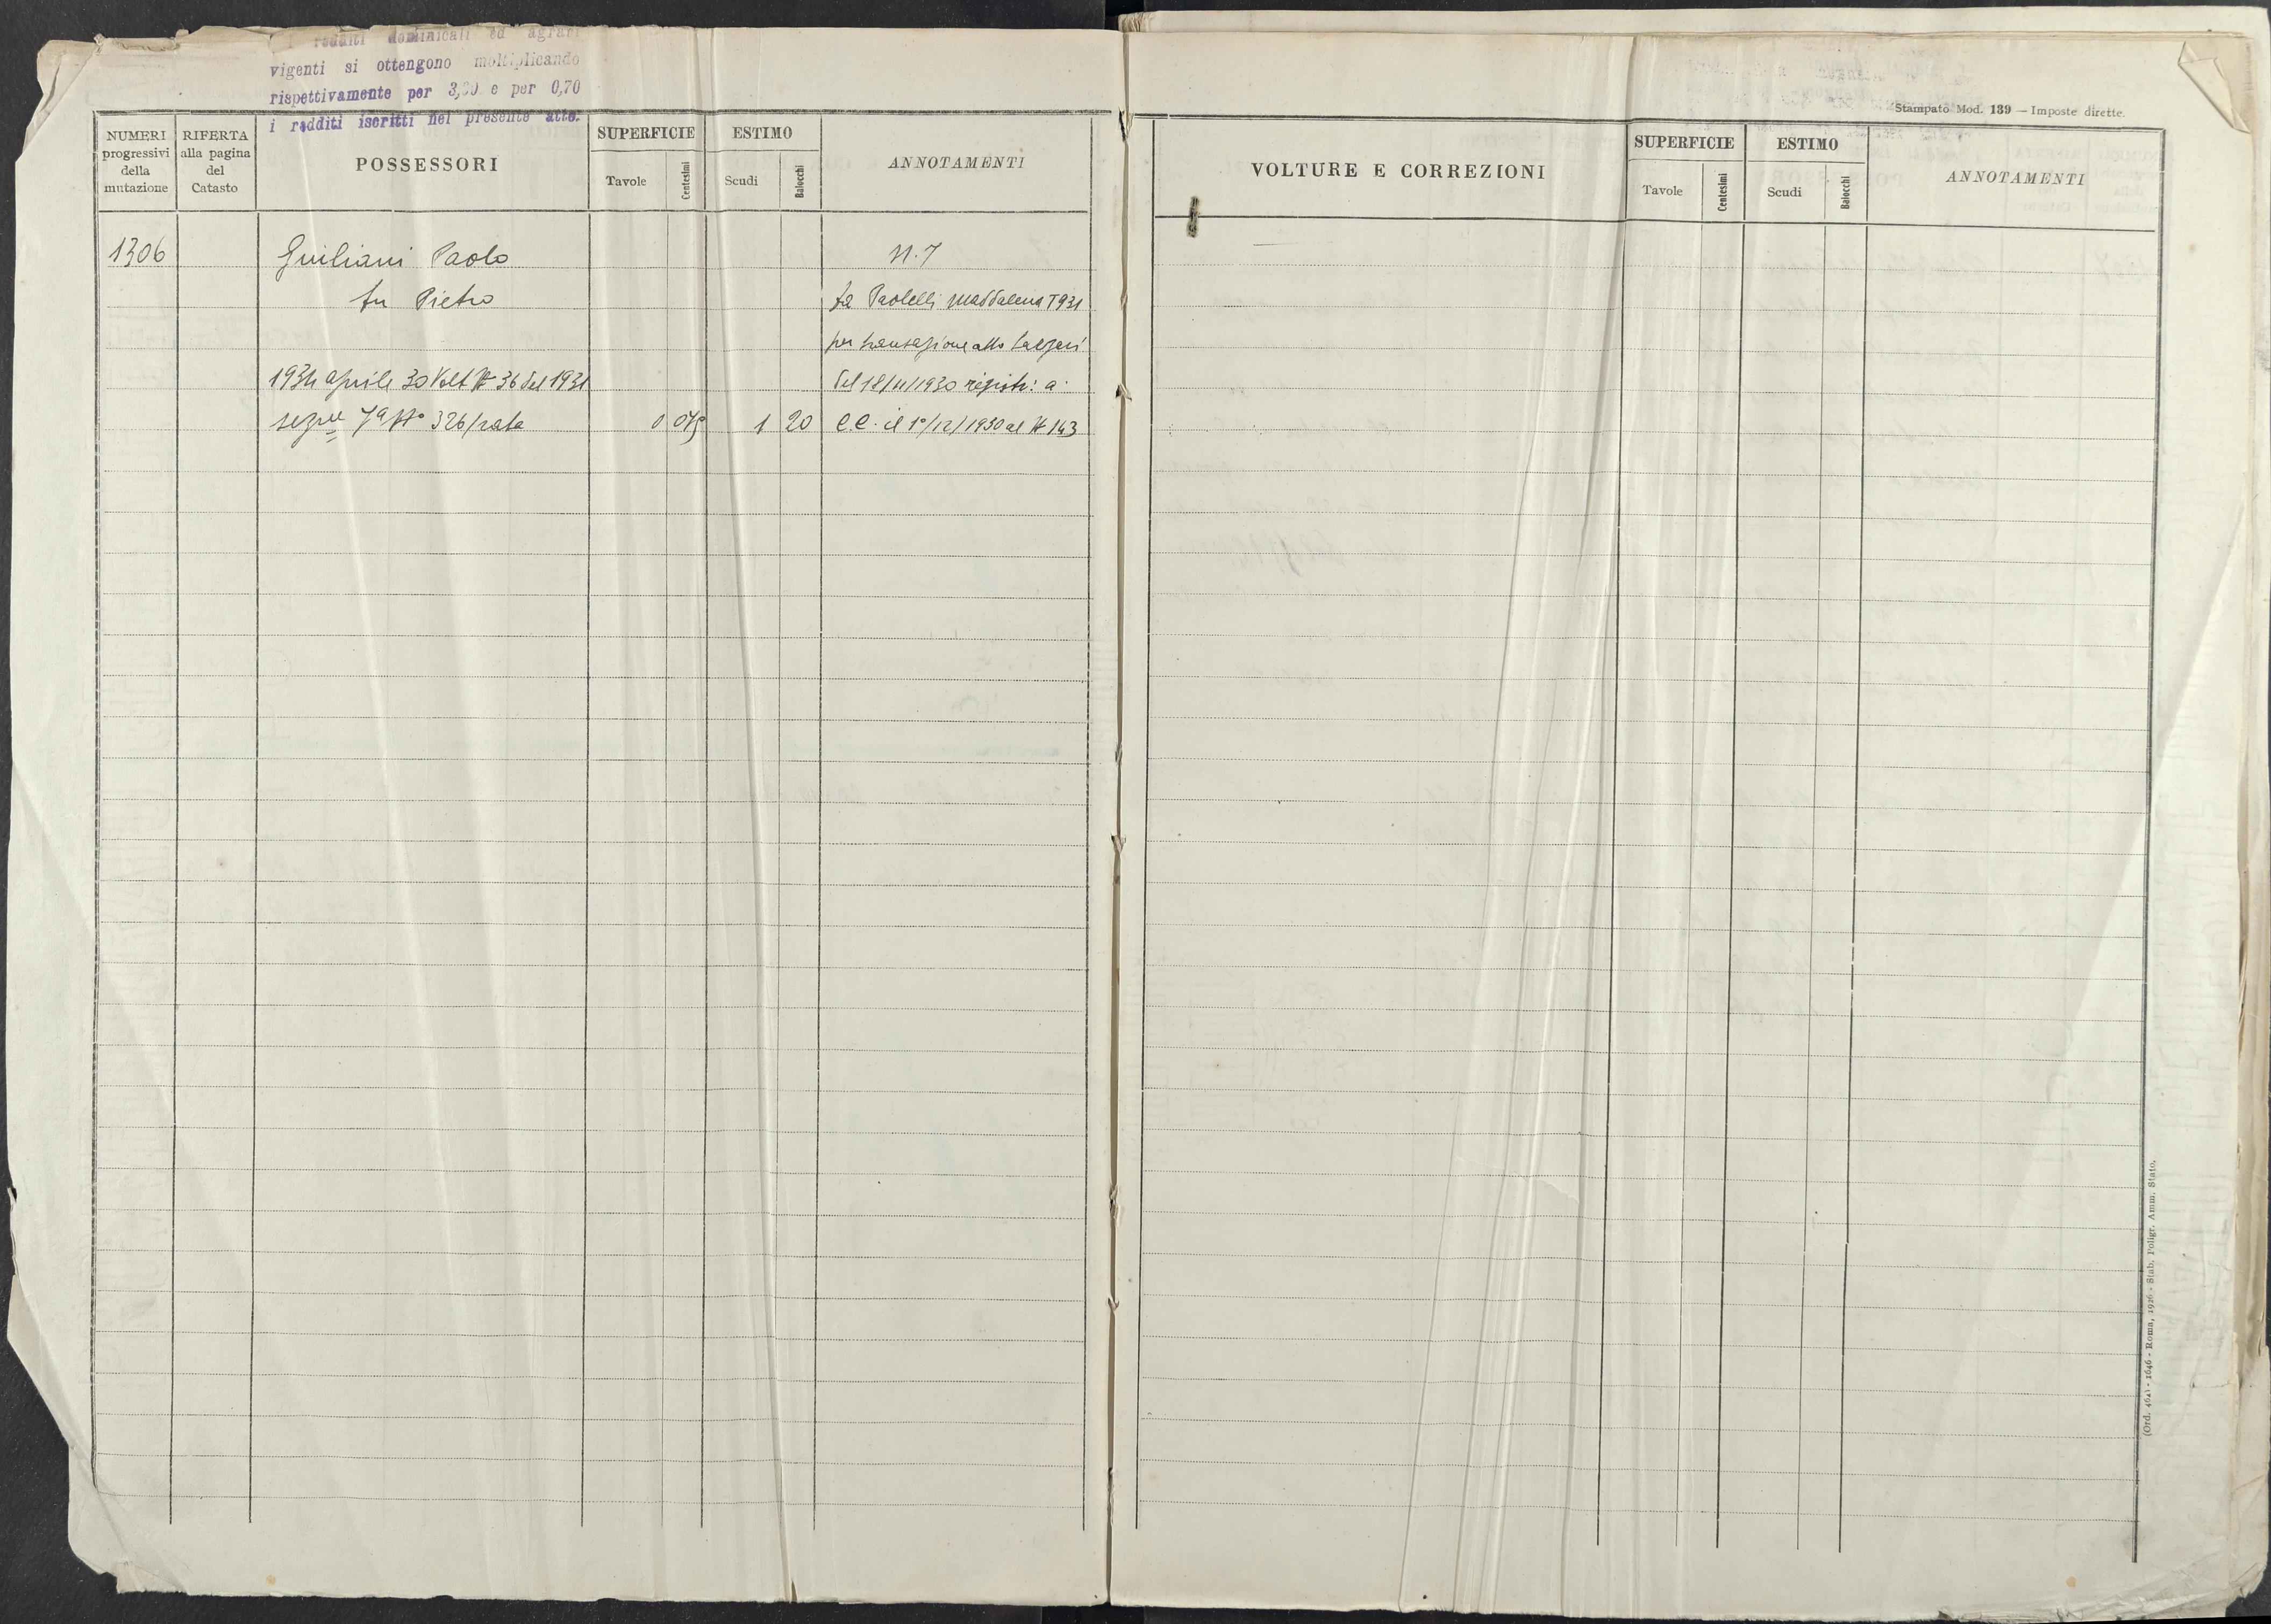 redditi dominicali ed agrari
vigenti si ottengono moltiplicando
rispettivamente per 3,30 e per 0,70
i redditi iscritti nel presente atto.
NUMERI progressivi della mutazione
RIFERTA alla pagina del Catasto
POSSESSORI
SUPERFICIE
Tavole
Centesimi
ESTIMO
Scudi
Baiocchi
ANNOTAMENTI
1306
Giuliani Paolo
N. 7
fu Pietro
da Paolelli Maddalena T 931
per transazione atto
1931 aprile 30 Volt N 36 del 1931
del 18/11/1930 registr: a
segue 7ª Nº 326/rata
0 075
1 20
C.C. il 1º/12/1930 al N 143
Stampato Mod. 139 — Imposte dirette.
VOLTURE E CORREZIONI
SUPERFICIE
Tavole
Centesimi
ESTIMO
Scudi
Baiocchi
ANNOTAMENTI
(Ord. 464) - 1646 - Roma, 1926 - Stab. Poligr. Amm. Stato.